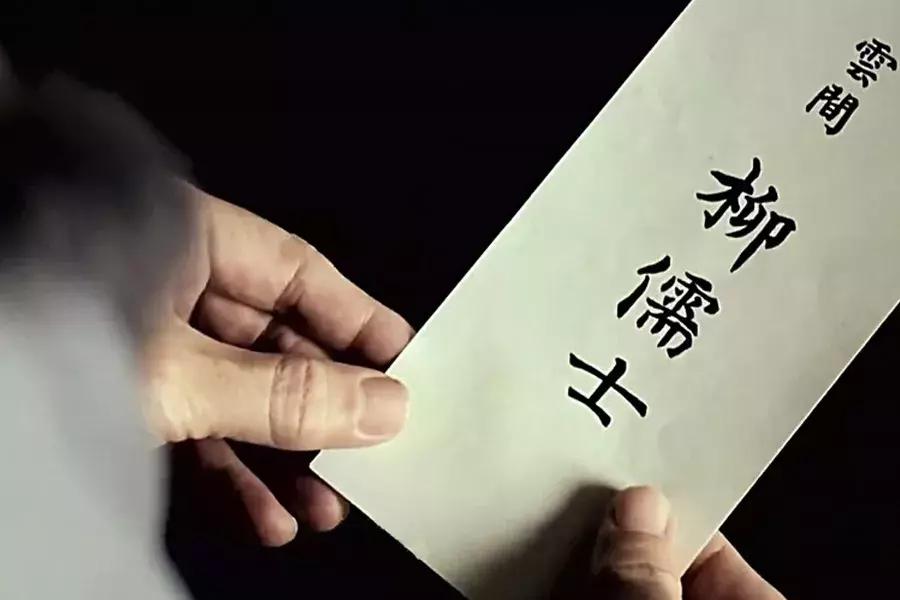 雲間
柳儒士